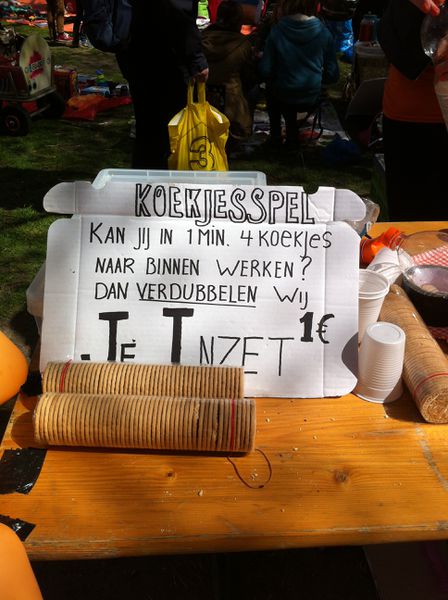 KOEKJESSPEL
KAN JIJ IN 1 MIN. 4 KOEKJES
NAAR BINNEN WERKEN?
DAN VERDUBBELEN WIJ
JE INZET 1€
3